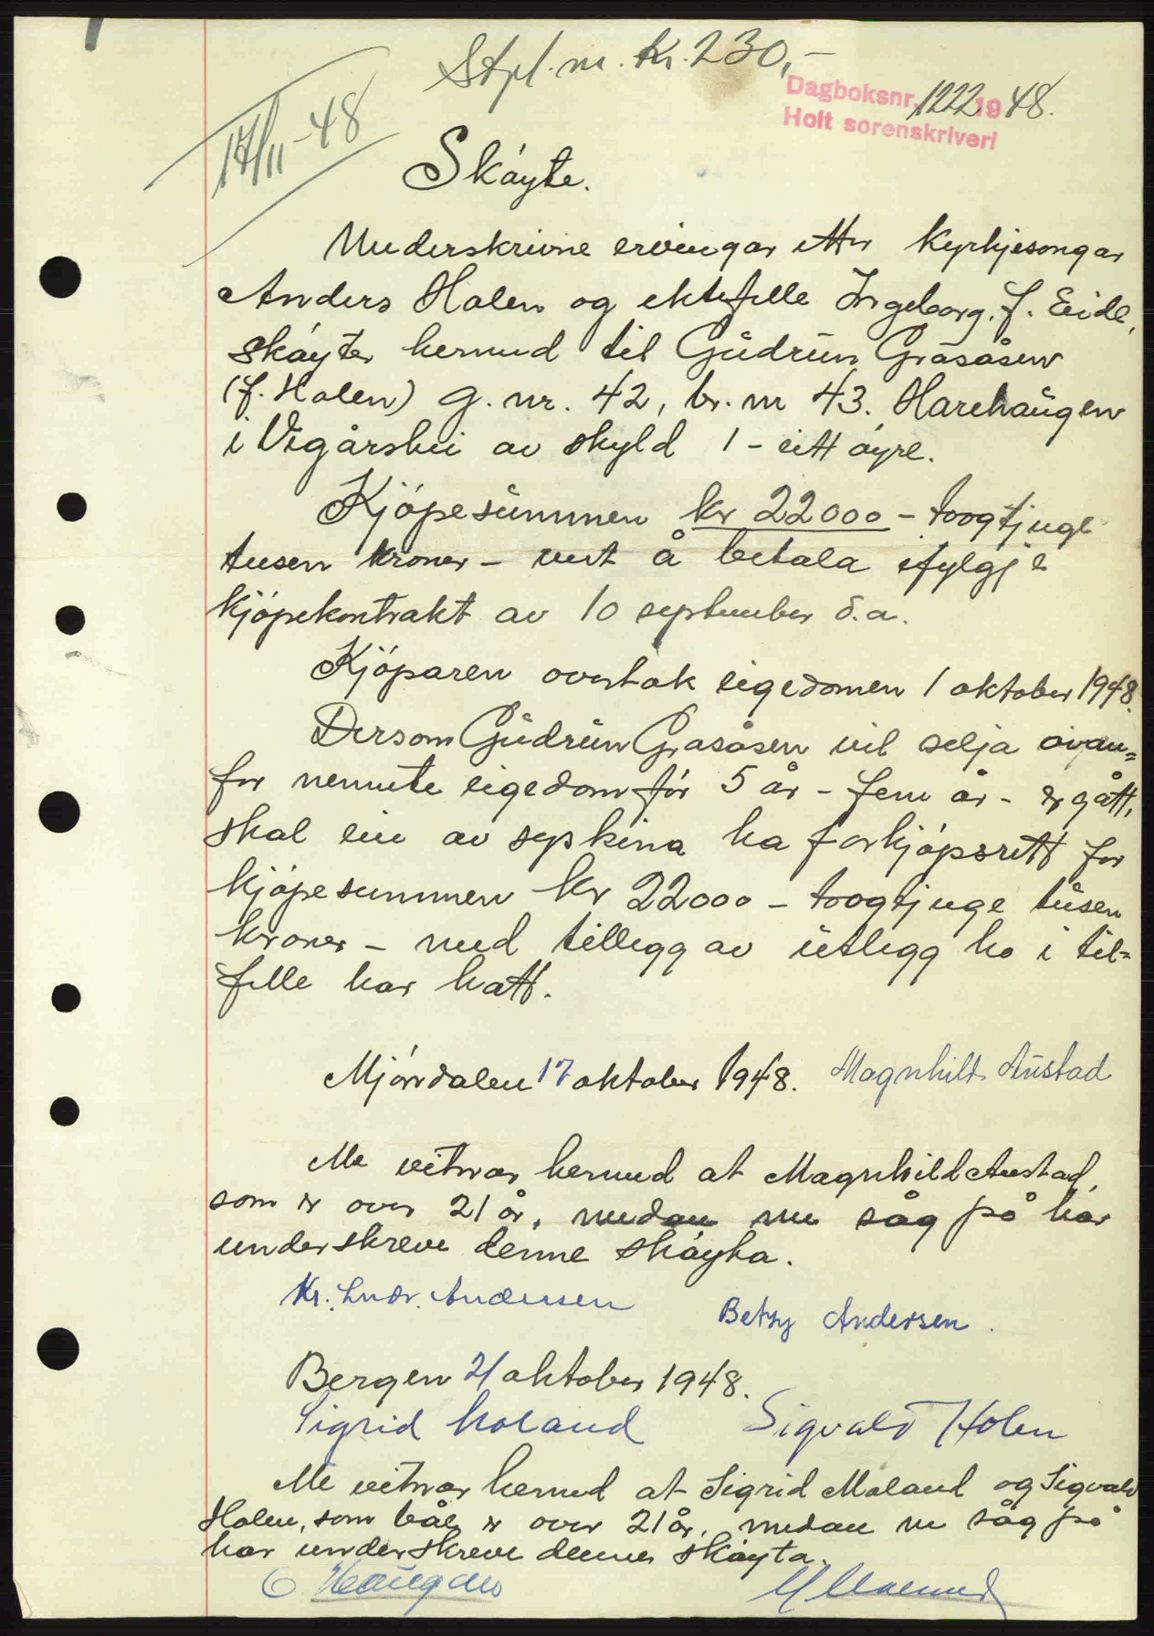 Stpl. m. kr. 230,-
Dagboksnr. 1222 1948.
Holt sorenskriveri
17/11-48
Skøyte.
Underskrivne ervingar etter kyrkjesongar
Anders Holen og ektefelle Ingeborg, f. Eide,
skøyter hermed til Gudrun Grasåsen
(f. Holen) g. nr. 42, br. nr 43. Harehaugen
i Vegårshei av skyld 1 - eitt øyre.
Kjøpesummen kr 22000 - toogtjuge
tusen kroner - vert å betala ifylgje
kjøpekontrakt av 10 september d.a.
Kjøparen overtok eigedomen 1 oktober 1948.
Dersom Gudrun Grasåsen vil selja ovan=
for nemnte eigedom før 5 år - fem år - er gått,
skal ein av syskina ha forkjøpsrett for
kjøpesummen kr 22000 - toogtjuge tusen
kroner - med tillegg av utlegg ho i til=
felle har hatt.
Mjøndalen 17 oktober 1948. Magnhild Austad
Me vitnar hermed at Magnhild Austad,
som er over 21 år, medan me såg på har
underskreve denne skøyta.
Kr. Ludv. Andersen
Betzy Andersen.
Bergen 21 oktober 1948.
Sigrid Moland Sigvald Holen
Me vitnar hermed at Sigrid Moland og Sigvald
Holen, som båe er over 21 år, medan me såg på
har underskreve denne skøyta.
O Haugen